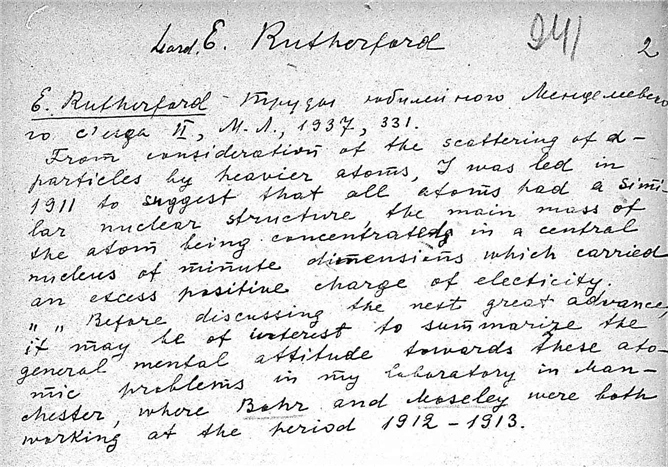 Lord. E. Rutherford 241 2
E. Rutherford - Труды юбилейного Менделеевско
го с'езда II, М.Л., 1937, 331.
From consideration of the scattering of α-
particles by heavier atoms, I was led in
1911 to suggest that all atoms had a simi
lar nuclear structure, the main mass of
the atom being concentrated in a central
nucleus of minute dimensions which carried
an excess positive charge of electicity.
" " Before discussing the next great advance,
it may be of interest to summarize the
general mental attitude towards these ato-
mic problems in my laboratory in Man-
chester, where Bohr and Moseley were both
working at the period 1912-1913.